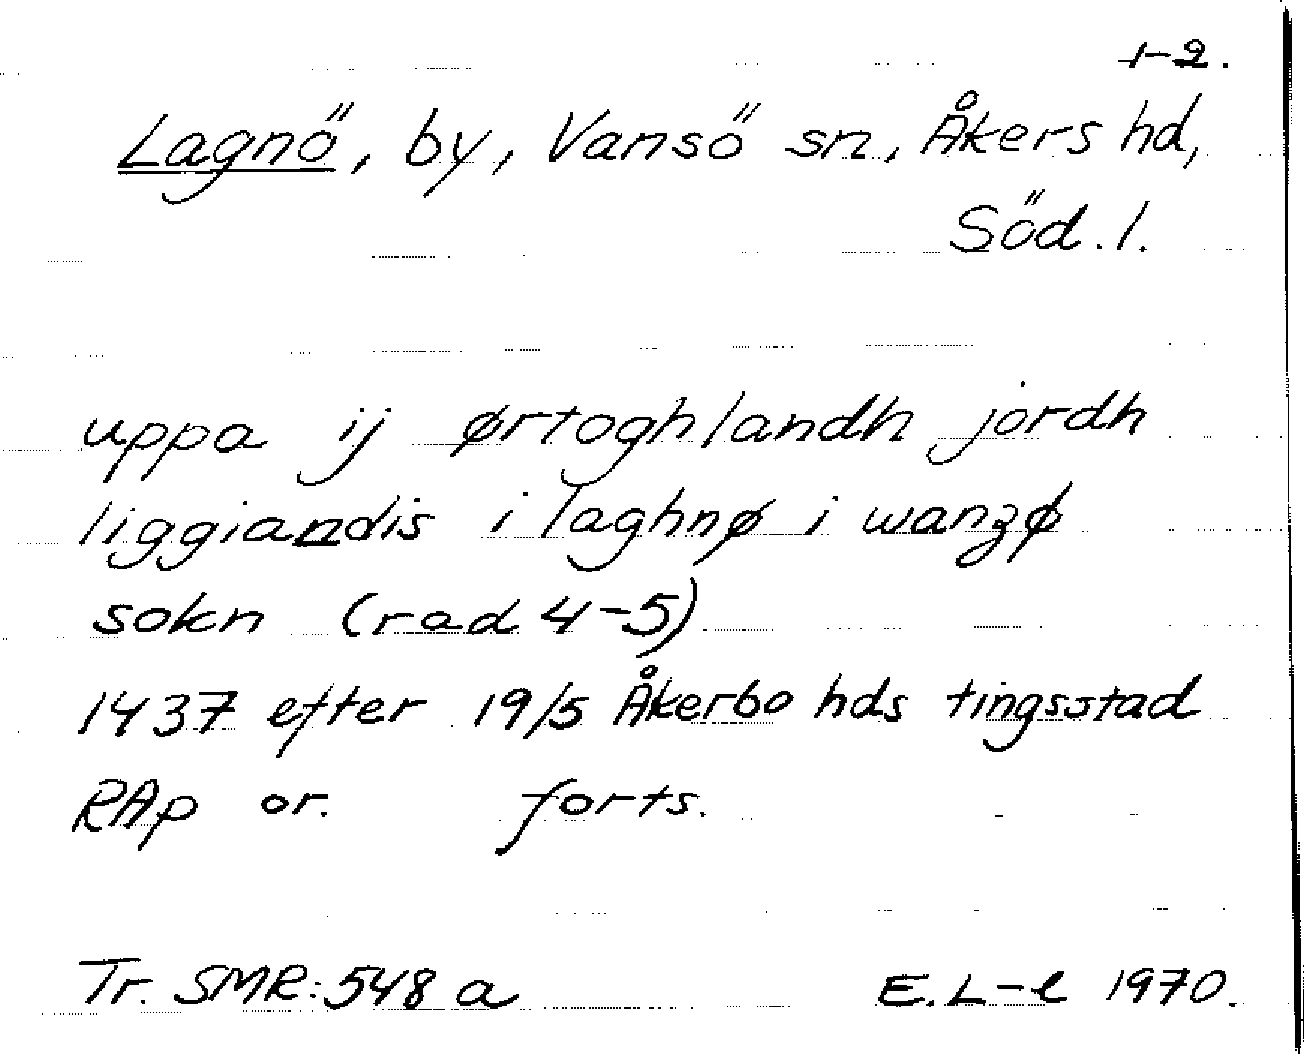 1-2.
Lagnö, by, Vansö sn, Åkers hd,
Söd. l.
uppa ij ørtoghlandh jordh
liggiandis i laghnø i wanzø
sokn (rad 4-5)
1437 efter 19/5 Åkerbo hds tingsstad
RAp or. forts.
Tr. SMR: 548 a E. L-l 1970.